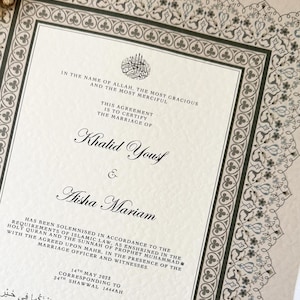 IN THE NAME OF ALLAH, THE MOST GRACIOUS
AND THE MOST MERCIFUL
THIS AGREEMENT
IS TO CERTIFY
THE MARRIAGE OF
Khalid Yousf
&
Aisha Mariam
HAS BEEN SOLEMNISED IN ACCORDANCE TO THE
REQUIREMENTS OF ISLAMIC LAW, AS ENSHRINED IN THE
HOLY QURAN AND THE SUNNAH OF PROPHET MUHAMMAD ﷺ
WITH THE AGREED UPON MEHR, IN THE PRESENCE OF THE
MARRIAGE OFFICER AND WITNESSES
14TH MAY 2022
CORRESPONDING TO
24TH SHAWWAL 1444H